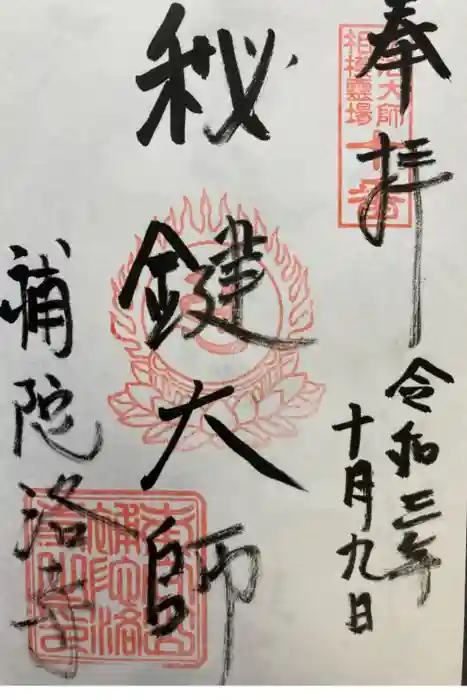 奉拝
令和三年
十月九日
大師
相模霊場
十番
秘鍵大師
補陀洛寺